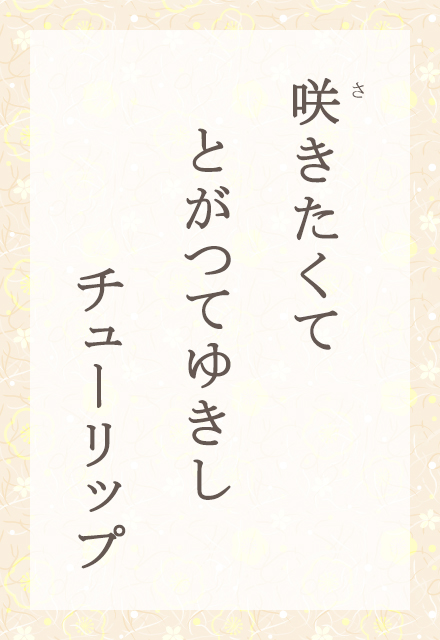 咲きたくて
とがつてゆきし
チューリップ
さ